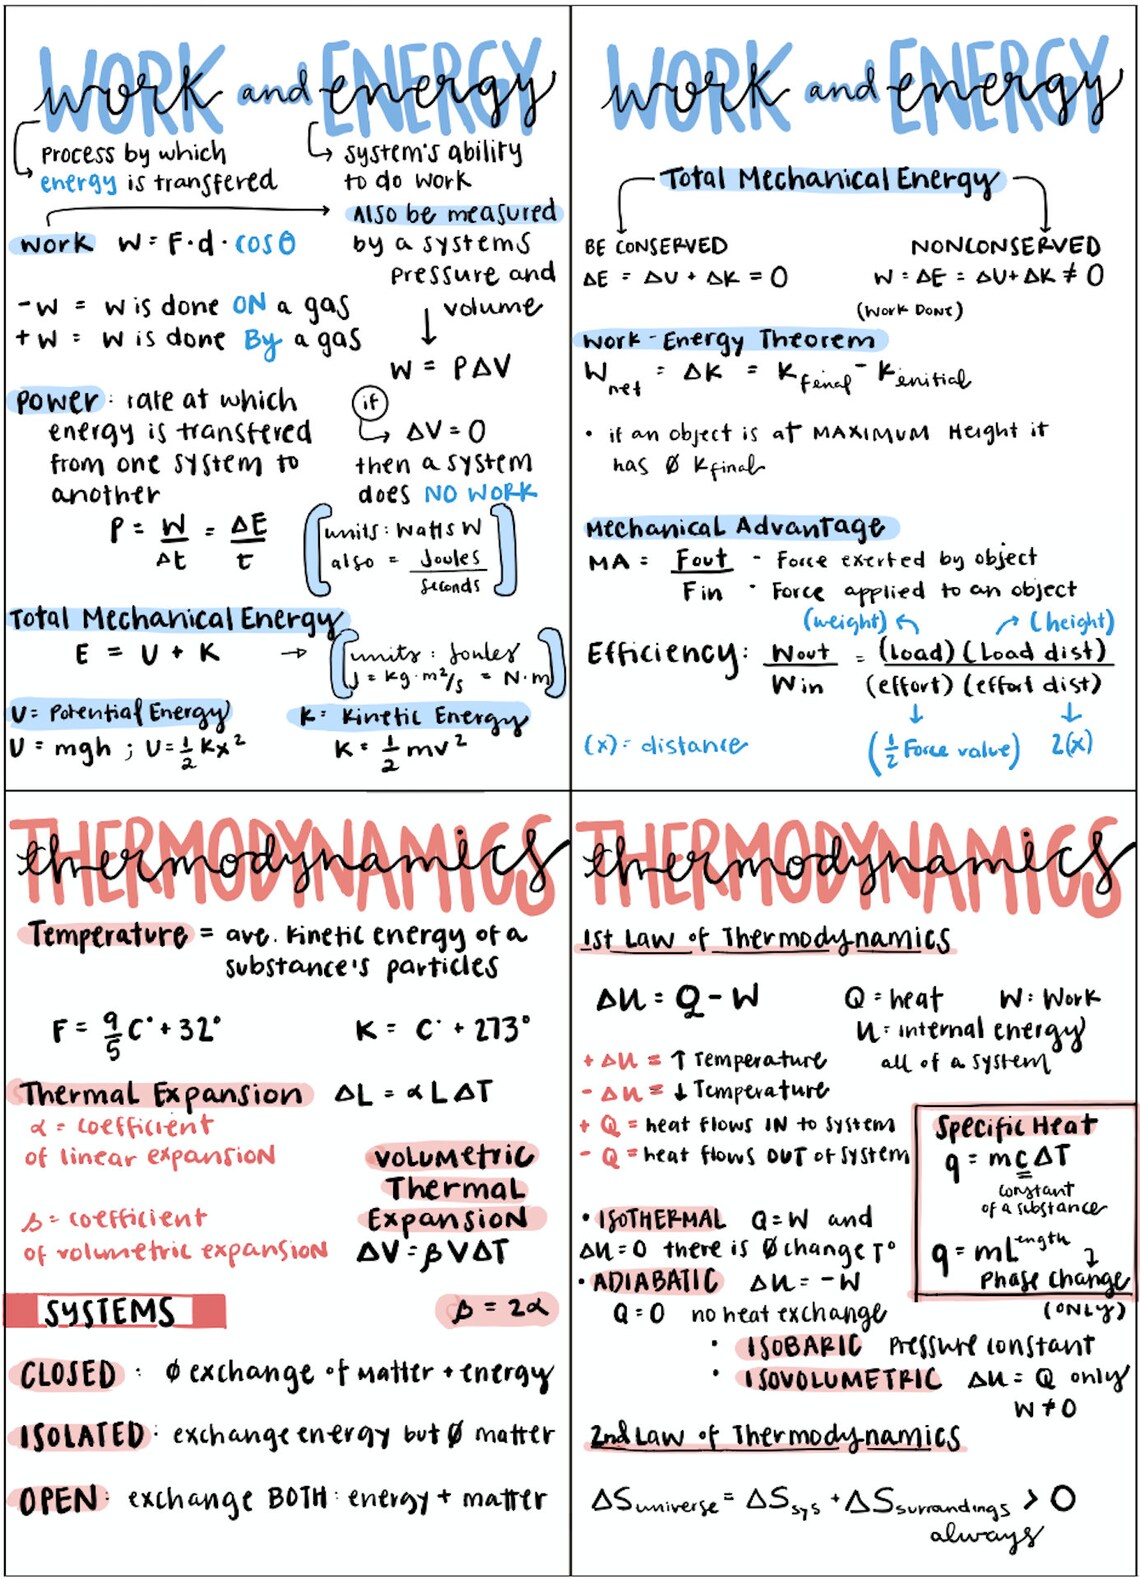 WORK and ENERGY
work energy
process by which
energy is transfered
system's ability
to do work
Work W = F·d·cosθ
-W = W is done ON a gas
+W = W is done By a gas
Also be measured
by a systems
pressure and
volume
W = PΔV
if
ΔV = 0
then a system
does NO WORK
power: rate at which
energy is transfered
from one system to
another
P = W/Δt = ΔE/t
units: Watts W
also = Joules/seconds
Total Mechanical Energy
E = U + K →
units: Joules
J = kg·m²/s = N·m
U = Potential Energy
U = mgh ; U = 1/2 Kx²
K = Kinetic Energy
K = 1/2 mv²
WORK and ENERGY
work energy
Total Mechanical Energy
BE CONSERVED
ΔE = ΔU + ΔK = 0
NONCONSERVED
W = ΔE = ΔU + ΔK ≠ 0
(Work Done)
Work - Energy Theorem
Wnet = ΔK = Kfinal - Kinitial
• if an object is at MAXIMUM Height it
has Ø Kfinal
Mechanical Advantage
MA = Fout - Force exerted by object
Fin - Force applied to an object
(weight) (height)
Efficiency: Wout/Win = (Load)(Load dist)/(effort)(effort dist)
(x) = distance
(1/2 Force value) 2(x)
THERMODYNAMICS
thermodynamics
Temperature = ave. kinetic energy of a
substance's particles
F = 9/5 C° + 32° K = C° + 273°
Thermal Expansion ΔL = αLΔT
α = coefficient
of linear expansion
β = coefficient
of volumetric expansion
Volumetric
Thermal
Expansion
ΔV = βVΔT
SYSTEMS
β = 2α
CLOSED: Ø exchange of matter + energy
ISOLATED: exchange energy but Ø matter
OPEN: exchange BOTH: energy + matter
THERMODYNAMICS
thermodynamics
1st Law of Thermodynamics
ΔU = Q - W Q = heat W: Work
U = internal energy
all of a system
+ ΔU = ↑ Temperature
- ΔU = ↓ Temperature
+ Q = heat flows IN to system
- Q = heat flows OUT of system
Specific Heat
q = mcΔT
constant
of a substance
q = mLength
Phase change
(ONLY)
• ISOTHERMAL Q = W and
ΔU = 0 there is Ø change T°
• ADIABATIC ΔU = -W
Q = 0 no heat exchange
• ISOBARIC Pressure constant
• ISOVOLUMETRIC ΔU = Q only
W ≠ 0
2nd Law of Thermodynamics
ΔSuniverse = ΔSsys + ΔSsurrandings > 0
always